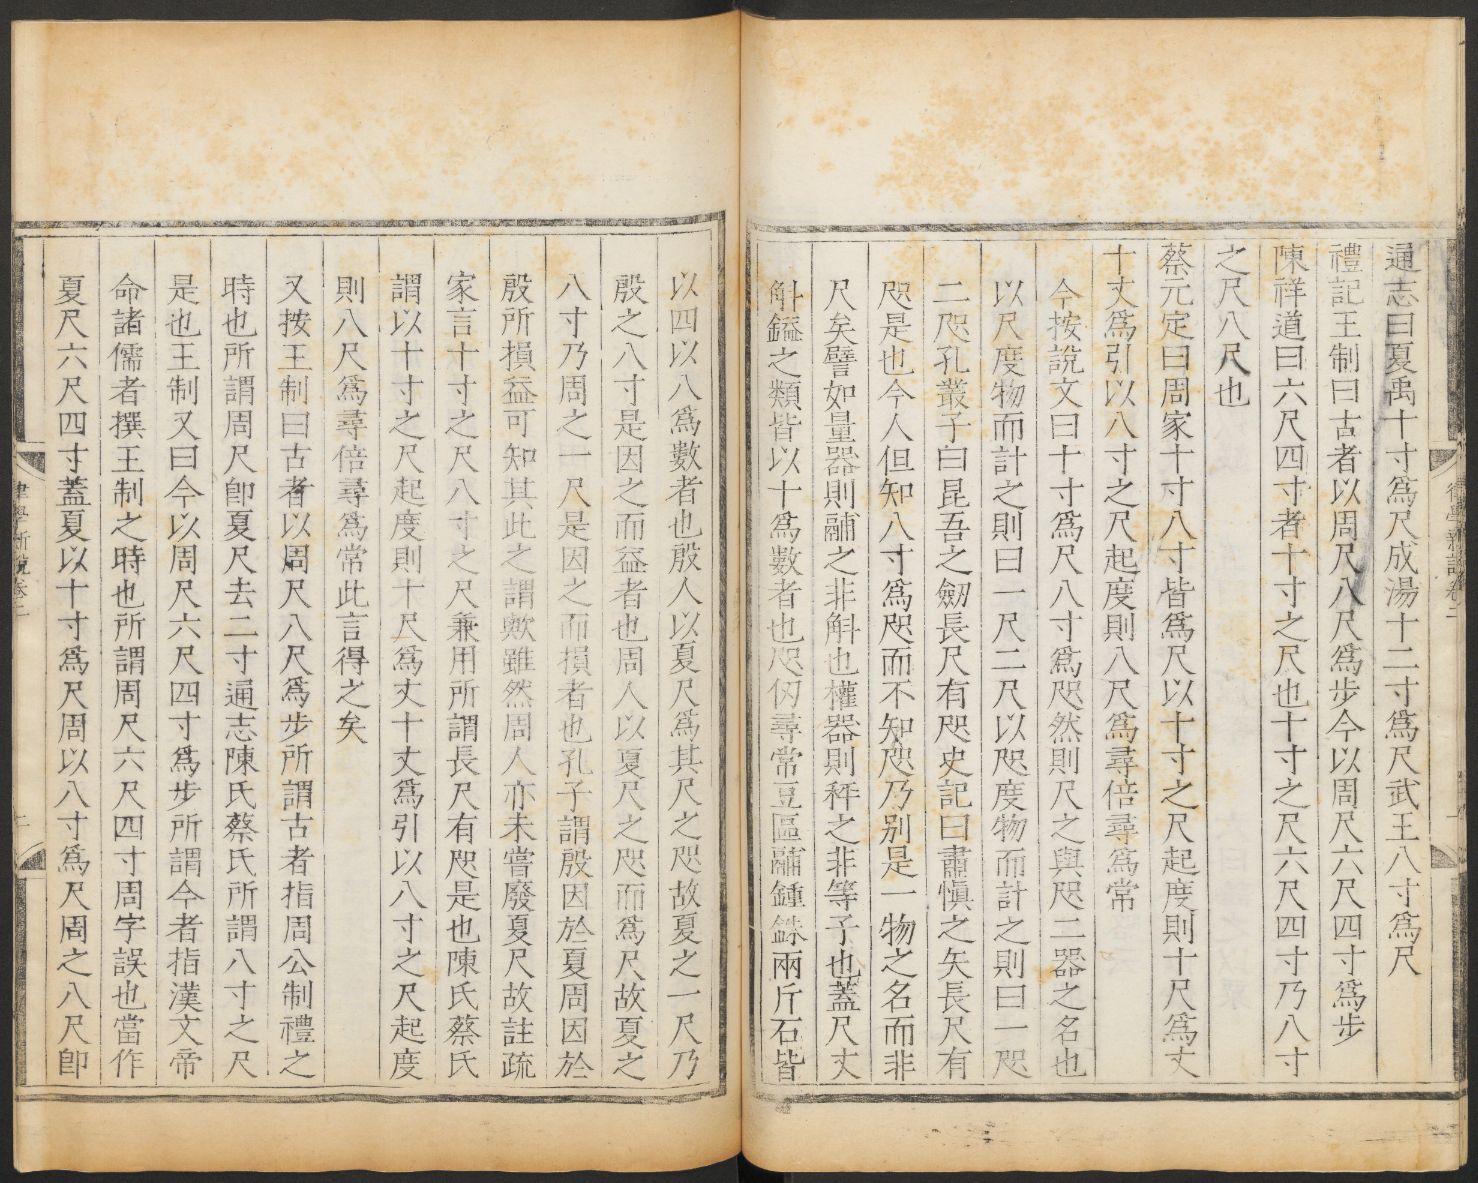 通志曰夏禹十寸爲尺成湯十二寸爲尺武王八寸爲尺
禮記王制曰古者以周尺八尺爲步今以周尺六尺四寸爲步
陳祥道曰六尺四寸者十寸之尺也十寸之尺六尺四寸乃八寸
之尺八尺也
蔡元定曰周家十寸八寸皆爲尺以十寸之尺起度則十尺爲丈
十丈爲引以八寸之尺起度則八尺爲尋倍尋爲常
今按說文曰十寸爲尺八寸爲咫然則尺之與咫二器之名也
以尺度物而計之則曰一尺二尺以咫度物而計之則曰一咫
二咫孔叢子曰昆吾之劒長尺有咫史記曰肅愼之矢長尺有
咫是也今人但知八寸爲咫而不知咫乃别是一物之名而非
尺矣譬如量器則鬴之非斛也權器則秤之非等子也蓋尺丈
斛鎰之類皆以十爲數者也咫仞尋常豆區鬴鍾銖兩斤石皆
以四以八爲數者也殷人以夏尺爲其尺之咫故夏之一尺乃
殷之八寸是因之而益者也周人以夏尺之咫而爲尺故夏之
八寸乃周之一尺是因之而損者也孔子謂殷因於夏周因於
殷所損益可知其此之謂歟雖然周人亦未嘗廢夏尺故註疏
家言十寸之尺八寸之尺兼用所謂長尺有咫是也陳氏蔡氏
謂以十寸之尺起度則十尺爲丈十丈爲引以八寸之尺起度
則八尺爲尋倍尋爲常此言得之矣
又按王制曰古者以周尺八尺爲步所謂古者指周公制禮之
時也所謂周尺卽夏尺去二寸通志陳氏蔡氏所謂八寸之尺
是也王制又曰今以周尺六尺四寸爲步所謂今者指漢文帝
命諸儒者撰王制之時也所謂周尺六尺四寸周字誤也當作
夏尺六尺四寸蓋夏以十寸爲尺周以八寸爲尺周之八尺卽
律學新說卷二
二